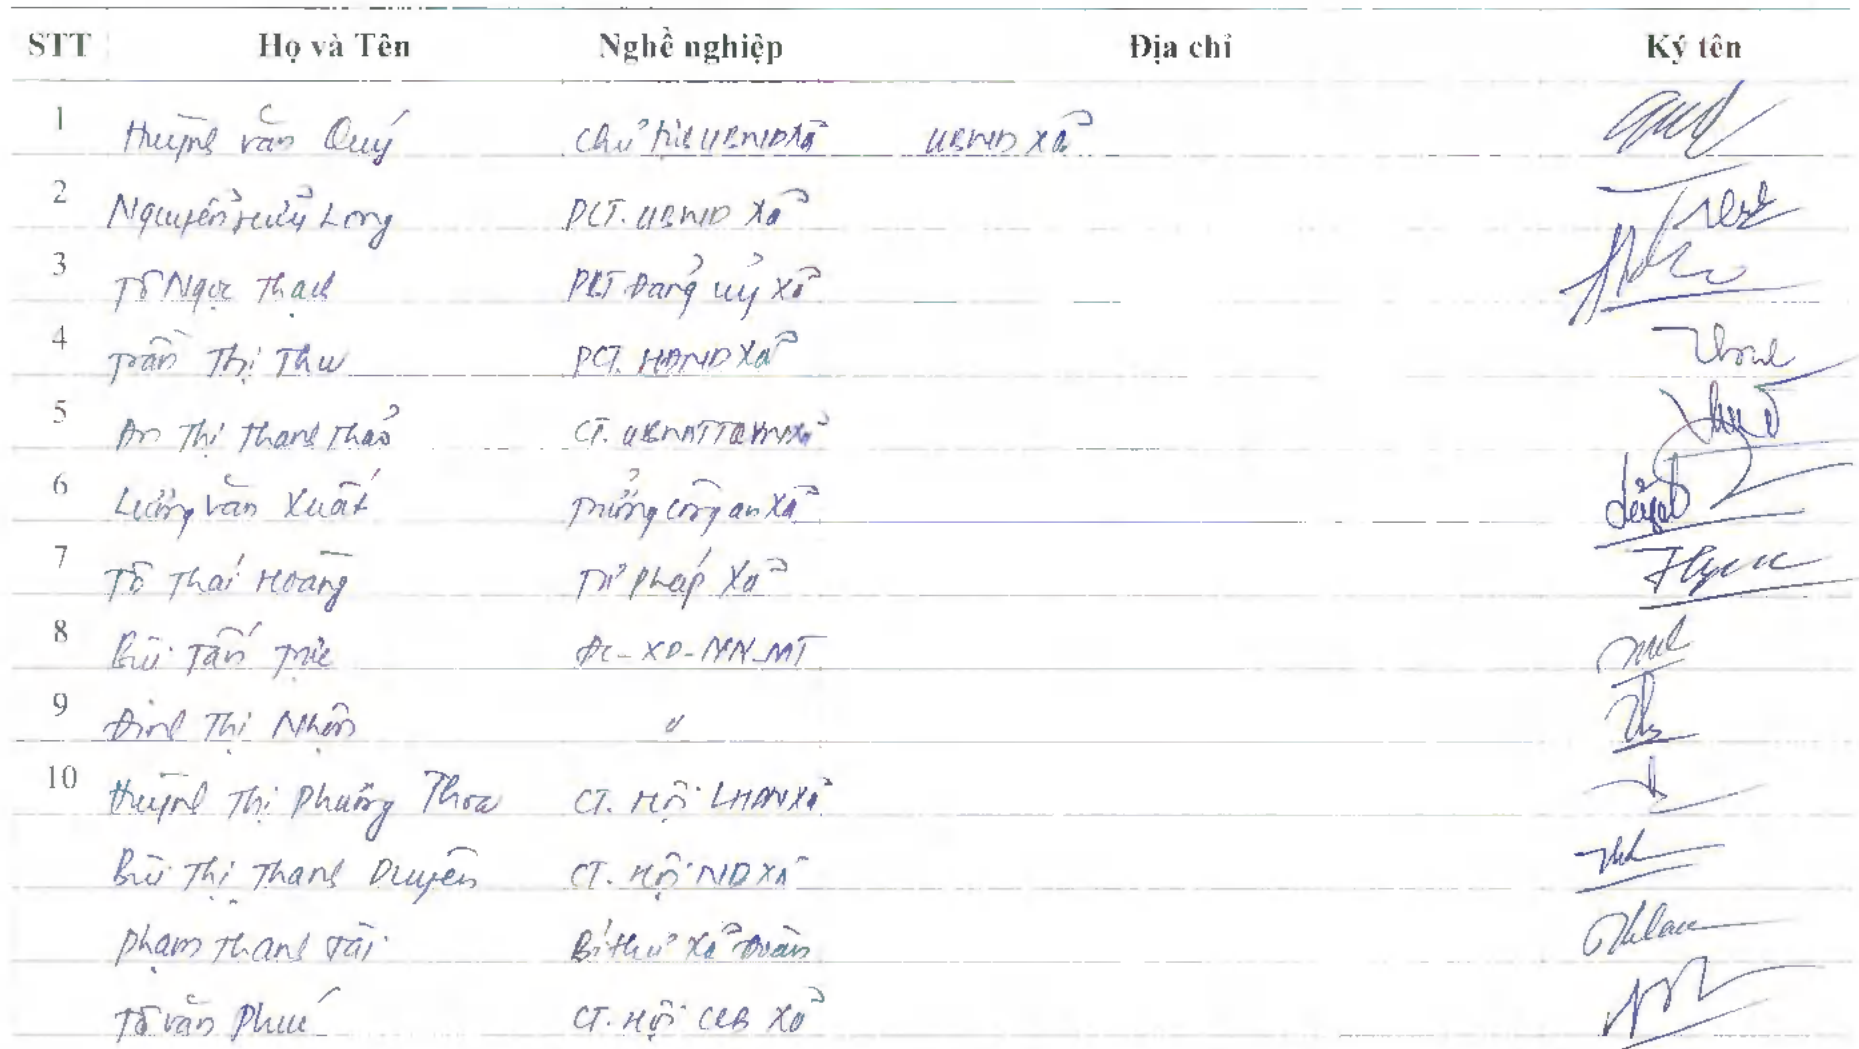 STT Họ và Tên Nghề nghiệp Địa chỉ Ký tên
1 Huỳnh Văn Quý Chủ tịch UBND xã UBND xã
2 Nguyễn Hữu Long PCT. UBND xã
3 Tô Ngọc Thạch PBT Đảng uỷ xã
4 Trần Thị Thu PCT. HĐND xã
5 An Thị Thanh Thảo CT. UBMTTQVN xã
6 Lương Văn Xuất Trưởng công an xã
7 Tô Thái Hoàng Tư pháp xã
8 Bùi Tấn Trúc ĐC-XD-NN-MT
9 Đinh Thị Nhơn "
10 Huỳnh Thị Phương Thoa CT. Hội LHPN xã
Bùi Thị Thanh Duyên CT. Hội ND xã
Phạm Thanh Tài Bí thư xã Đoàn
Tô Văn Phú CT. Hội CCB xã